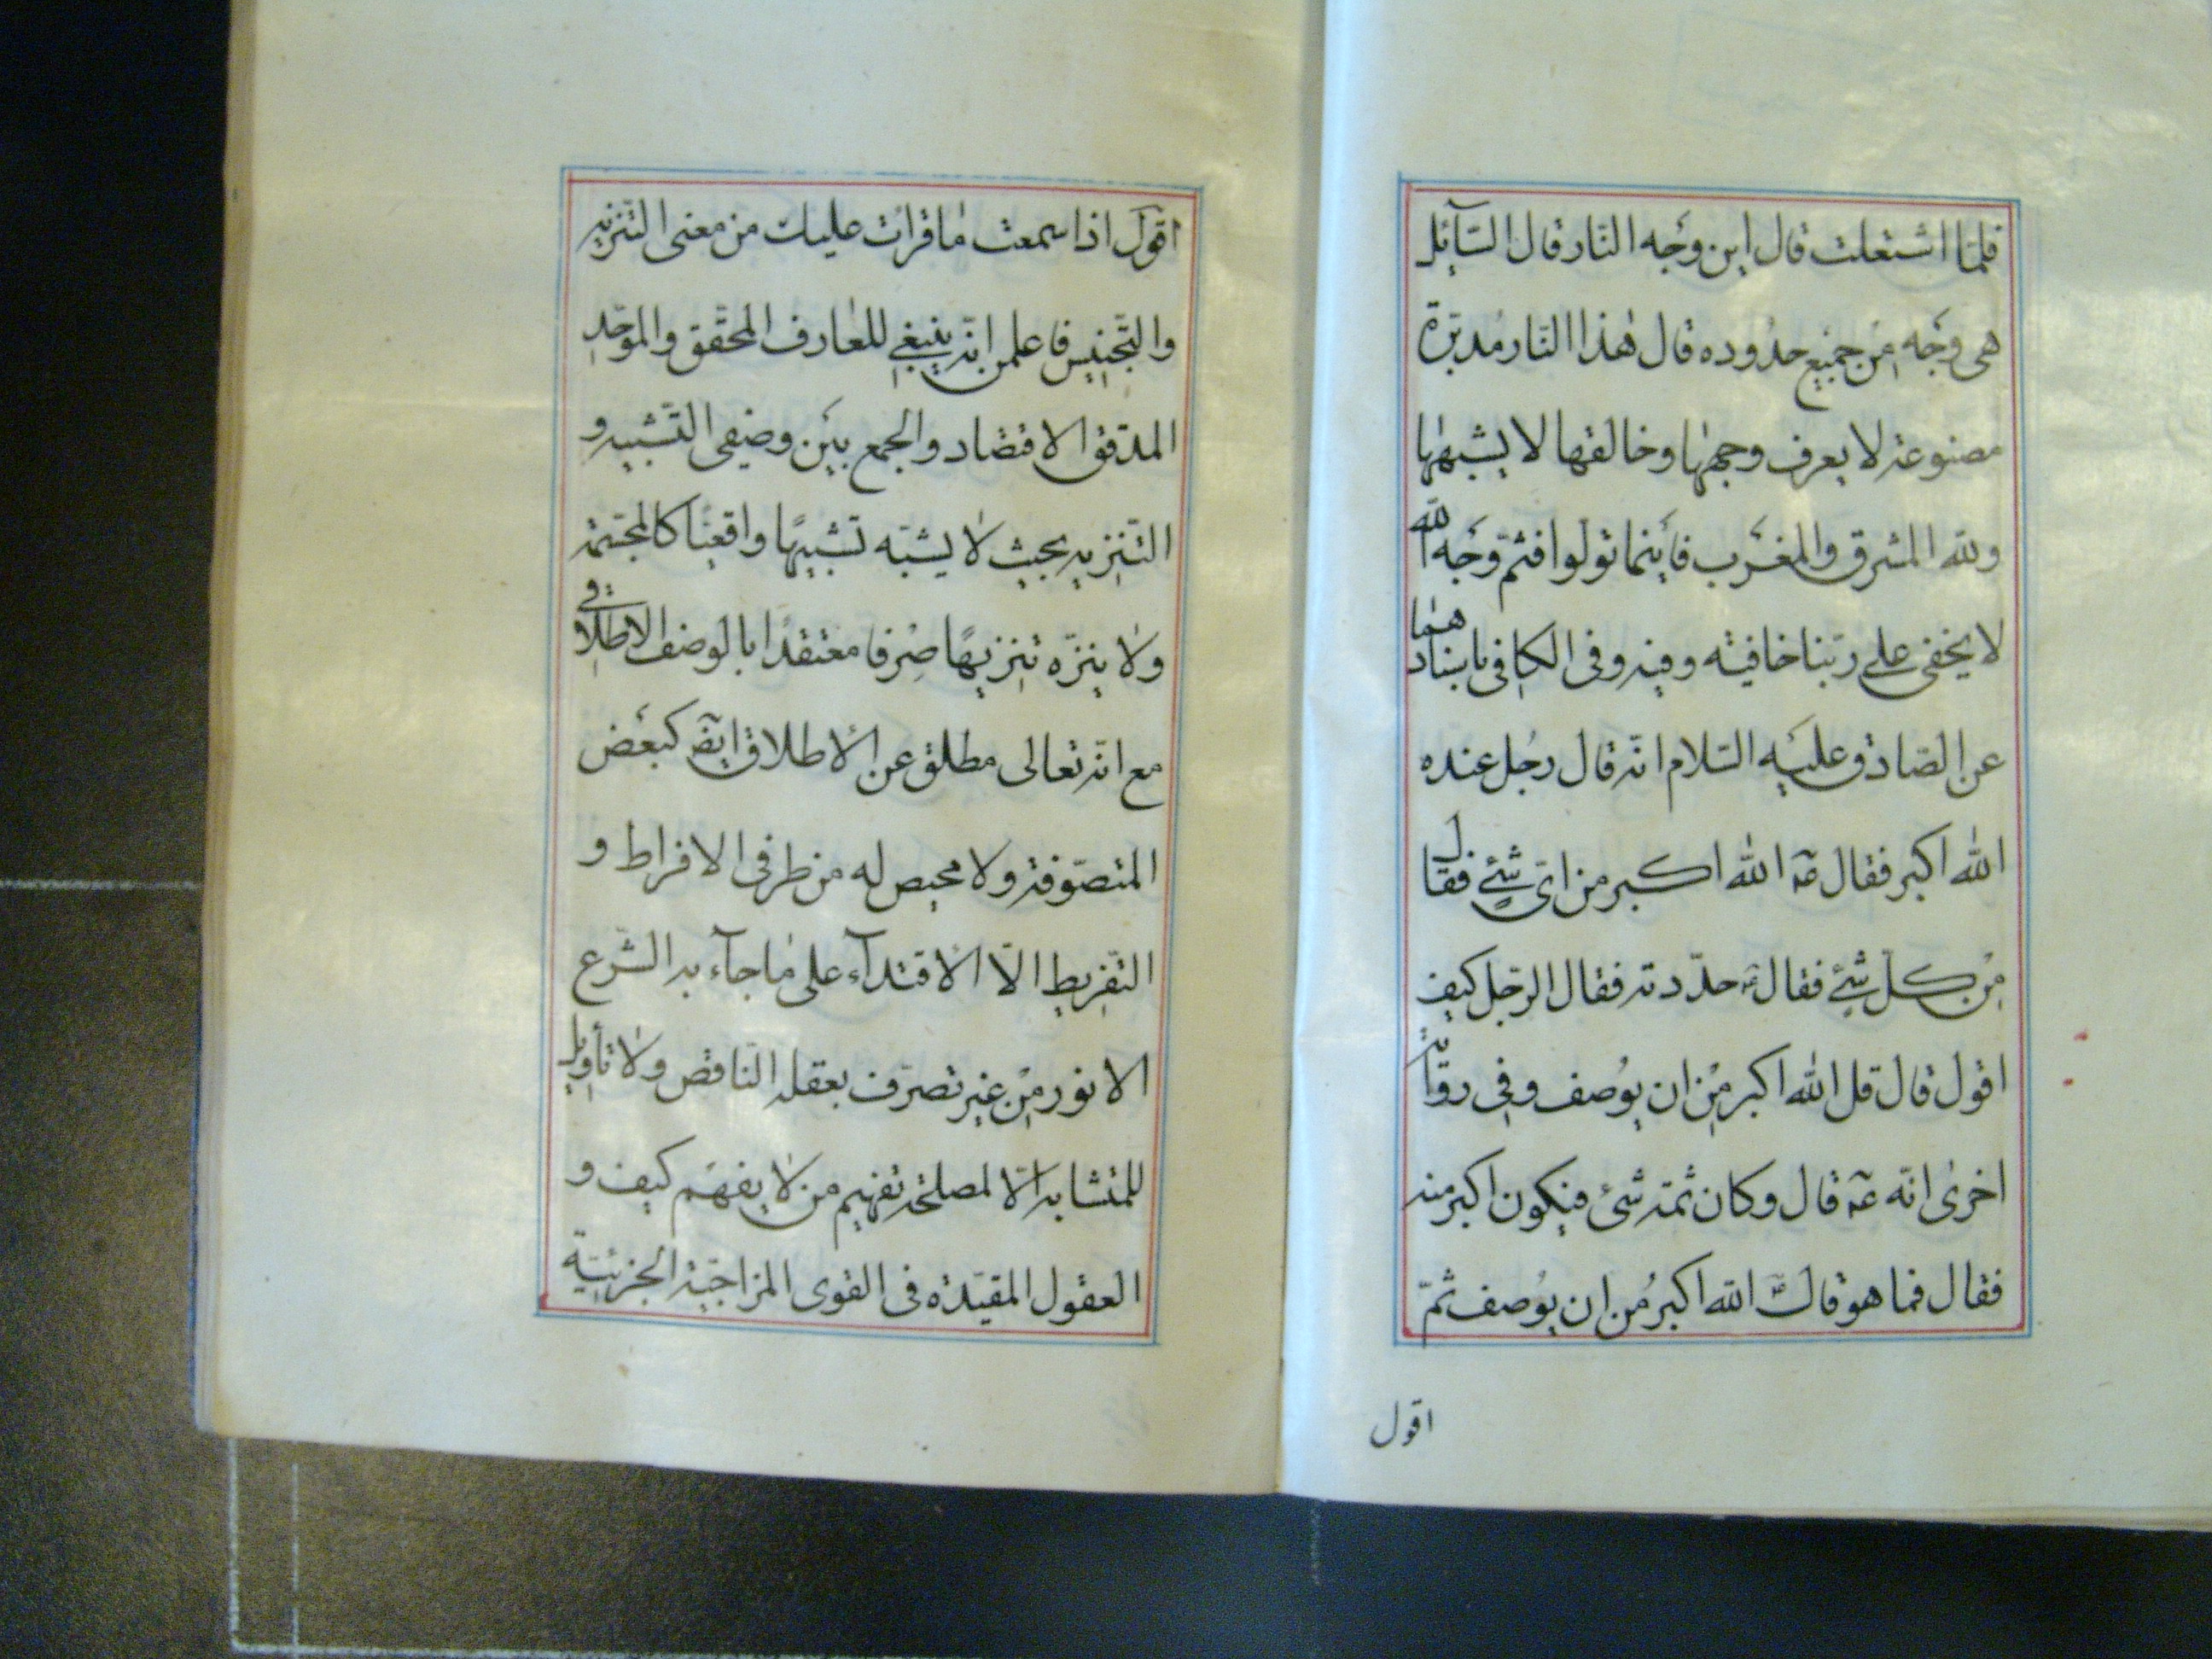 فلمّا اشتعلت قال اين وجه النّار قال السّآئل
هى وجه من جميع حدوده قال هذا النّار مدبّرة
مصنوعة لا يعرف وجهها وخالقها لا يشبهها
ولله المشرق والمغرب فأينما تولوا فثمّ وجه الله
لا يخفى على ربّنا خافية وفيه وفى الكافى باسنادهما
عن الصّادق عليه السّلام انّه قال رجل عنده
الله اكبر فقال عه الله اكبر من اىّ شئ فقال
من كلّ شئ فقال عه حدّدته فقال الرّجل كيف
اقول قال قل الله اكبر من ان يوصف وفى رواية
اخرى انّه عه قال وكان ثمّة شئ فيكون اكبر منه
فقال فما هو قال الله اكبر من ان يوصف ثمّ
اقول
اقول اذا سمعت ما قرات عليك من معنى التّنزيه
والتّجنيس فاعلمن انّه ينبغى للعارف المحقّق والموحّد
المدقّق الاقتصاد والجمع بين وصفى التّشبيه و
التّنزيه بحيث لا يشبّه تشبيهًا واقعيًا كالمجسّمة
ولا ينزّه تنزيهًا صرفا معتقدًا بالوصف الاطلاقى
مع انّه تعالى مطلق عن الاطلاق ايضا كبعض
المتصوّفة ولا محيص له من طرفى الافراط و
التّفريط الّا الاقتدآء على ما جآء به الشّرع
الانور من غير تصرّف بعقله النّاقص ولا تأويل
للمتشابه الّا لمصلحة تفهيم من لا يفهم كيف و
العقول المقيّدة فى القوى المزاجيّة الجزئيّة